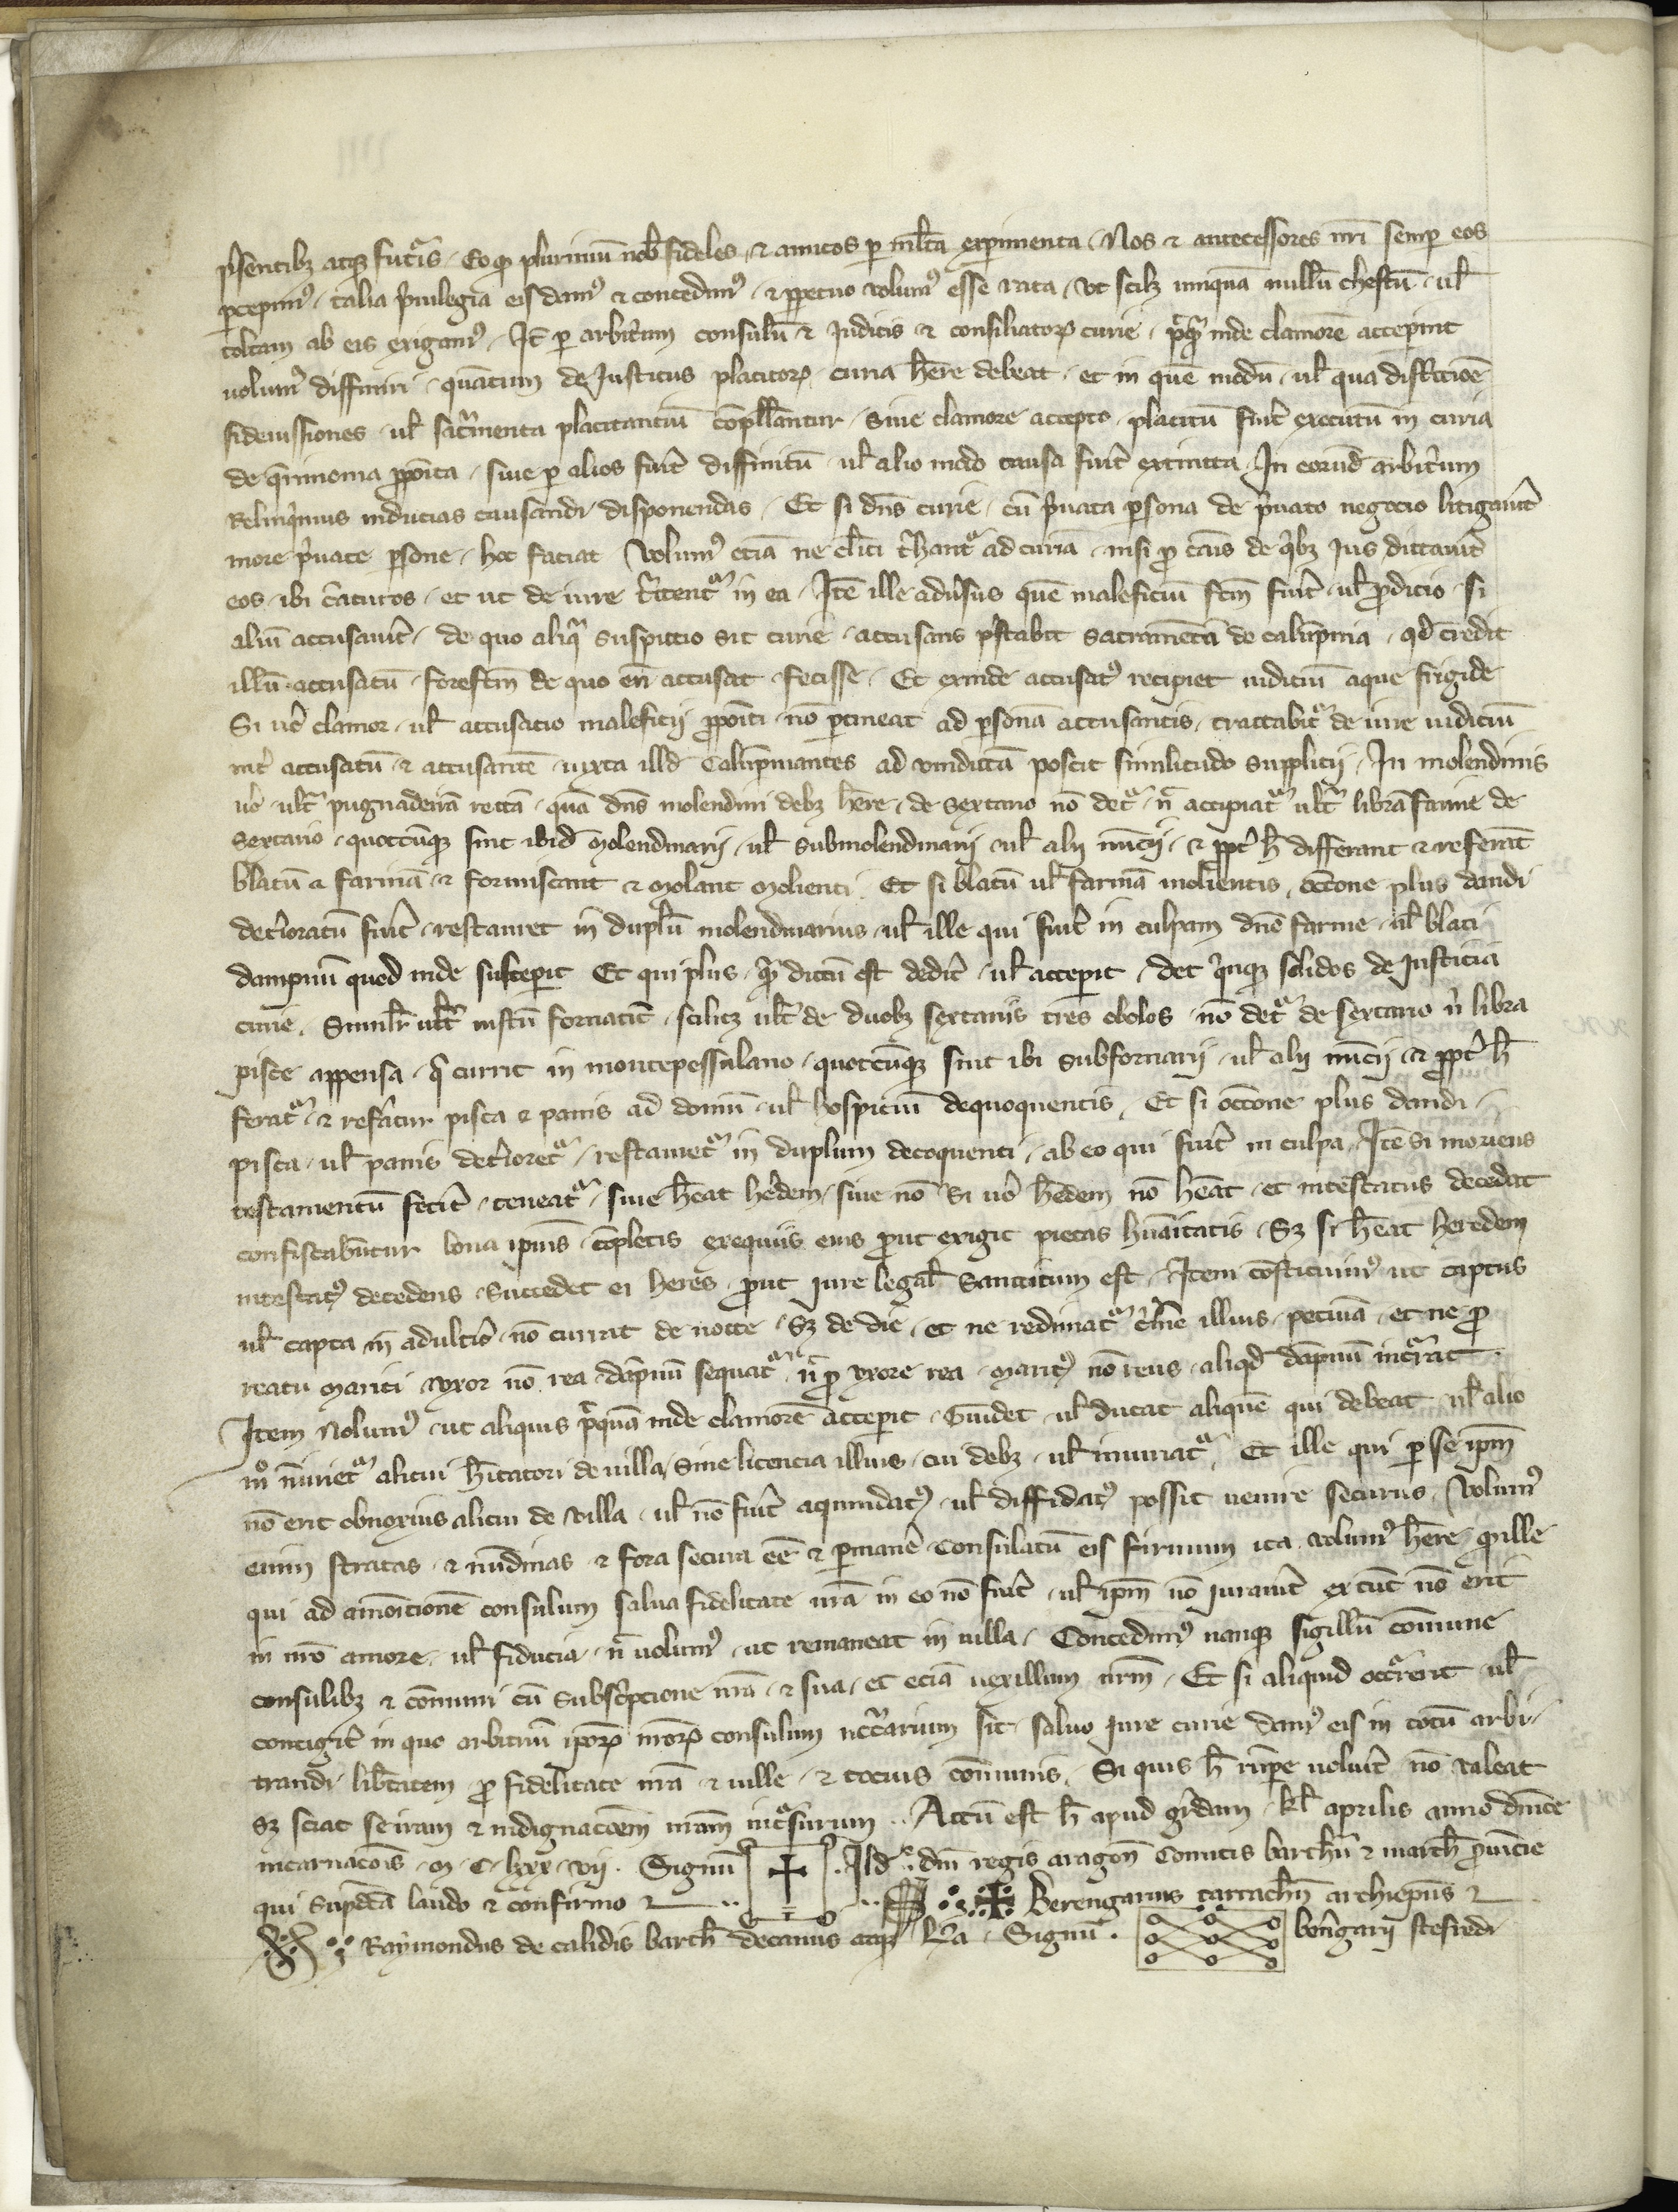 p̄sentibz atqz futur̄is . Eo qȝ plurimū nob̄ fideles . ⁊ amicos p ml̄ta exp̱imenta . Nos ⁊ antecessores nr̄i semp̱ eos
p̱cepim⁹ . talia p̄uilegia eis dam⁹ ⁊ concedim⁹ . ⁊ p̱petuo volum⁹ esse rata . vt scilz nunquā nullū chestū . ul̄
toltam ab eis exigam⁹ . It̄ p̱ arbit̄um consulū ⁊ Iudicis ⁊ consiliatorꝝ curie . p̄qȝ inde clamorē accep̱int
uolum⁹ diffiniri . quātum de Iusticiis placitorꝝ . curia hēre debeat . et in quē modū . ul̄ qua discretiōē
fideiussiones . ul̄ sac̄menta placitantiū cōpellantur . Siue clamore accepto . placitū fuīt executū in curia
de q̄rimonia p̱poīta . siue p̱ alios fuīt diffinitū . ul̄ alio modo causa fuīt extincta . In eorūd arbit̄um
Relinq̄mus inducias causandi disponendas . Et si dn̄s curie . cū p̄uata p̱sona de p̄uato negocio litigauīt
more p̄uate p̱sone . hoc faciat Volum⁹ etiā ne cl̄ici t̄hant̄ ad curiā . nisi p̱ causis de q̄bz Ius dictauīt
eos . ibi t̄cturos . et ut de iure t̄ctent̄ in ea . Itē ille adūsus quē maleficiū fc̄m fuīt . ul̄ p̱ditio . si
aliū accusauīt . de quo aliq̄ suspicio sit curie . accusans p̄stabit sacramētū de calūpnia . qd̄ credit
illū accusatū forefc̄m de quo eū accusat . fecisse . Et exinde accusat⁹ recipiet iudiciū aque frigide
Si uō clamor . ul̄ accusatio maleficij p̱poīti . nō p̱tineat ad p̱sonā accusantis . tractabit̄ de iure iudiciū
int̄ accusatū . ⁊ accusantē . iuxta illd̄ Calūpniantes ad vindictā poscit similitudo supplicij . In molendinis
uō . ult̄ pugnadeiā rectā . quā dn̄s molendini debz hēre . de sextario nō det̄ . n̄ accipiat̄ ult̄ librā farine de
sextario . quotcūqȝ sint ibid̄ molendinarij . ul̄ submolendinarij . ul̄ alij nūcij . ⁊ p̱pt̄ h̄ differant ⁊ referāt
blatū ⁊ farinā ⁊ forniscant ⁊ molant molienti . Et si blatū ul̄ farinā molientis . occōne plus dandi
det̄ioratū fuīt . restauret in duplū molendinarius . ul̄ ille qui fuīt in culpam dn̄o farine . ul̄ blati
dampnū quod inde suscep̱it Et qui plus . q̄ dictū est dedīt . ul̄ accep̱it . det q̄nqȝ solidos de Iusticiā
curie . Simil̄r ult̄ iustū fornaticū . scilicz ult̄ de duobz sextariis tres obolos . nō det̄ de sextario n̄ libra
piste appensa . q̄ currit in montepessulano . quotcūqȝ sint ibi subfornarij . ul̄ alij nūcij . ⁊ p̱pt̄ h̄
ferat̄ . ⁊ ref̄atur pista ⁊ panis ad domū . ul̄ hospiciū dequoquentis . Et si occōne plus dandi .
pista . ul̄ panis det̄ioret̄ . restauret̄ in duplum decoquenti . ab eo qui fuīt in culpa . Itē si moriens
testamentū fecīt . teneat̄ . siue hēat hēdem . siue nō Si uō hēdem nō hēat . et intestatus decedat
confiscabūtur bona ip̄ius . cōpletis exequiis eius p̱ut exigit pietas hūanitatis . Sz si hēat heredem
intestat⁹ decedens . succedet ei heres . p̱ut iure legal̄ sanccitum est . Item cōstituim⁹ ut captus
ul̄ capta in adult̄io . nō currat de nocte . Sz de die . et ne redimat̄ c̄mē illius . pecuniā . et ne p̱
reatu mariti vxor nō rea dāpnū sequat̄ . n̄ p̱ vxore rea . marit⁹ nō reus . aliqd̄ dāpnū incurrat .
Item Nolum⁹ . ut aliquis p̄quā inde clamorē accep̱it . Guidet . ul̄ ducat aliquē qui debeat . ul̄ alio
mō īiuriet̄ alicui hītatori de uilla . Sine licencia illius . cui debz . ul̄ iniuriat̄ . Et ille qui p̱ se ip̄m
nō erit obnoxius alicui de villa . ul̄ nō fuīt aquindat⁹ . ul̄ diffidat⁹ possit uenire securus . Volum⁹
enim stratas . ⁊ nūdinas ⁊ fora secura eē ⁊ p̱manē Consulatū eis firmum ita volum⁹ hēre qȝ ille
qui ad amōicionē consulum salua fidelitate nr̄a in eo nō fuīt . ul̄ ip̄m nō iurauīt ex tūc nō erit
in nr̄o amore . ul̄ fiducia . n̄ uolum⁹ . ut remaneat in uilla . Concedim⁹ nanqȝ sigillū cōmune
consulibz ⁊ cōmuni cū subsc̄ptione nr̄a . ⁊ sua . et eciā uexillum nr̄m . Et si aliquid occurrerit . ul̄
contigīt in quo arbitriū ip̄orꝝ nr̄orꝝ consulum nec̄carium sit . saluo iure curie dam⁹ eis in totū arbi-
trandi lib̄tatem p̱ fidelitate nr̄a ⁊ uille . ⁊ tocius cōmunis . Si quis h̄ rūpe uoluīt nō valeat
Sz sciat se iram ⁊ indignacōem nr̄am incursurum . . Actū est h̄ apud gīdam . kl̄ aprilis anno dn̄ice
incarnacōis . m . c . lxxx . vij . Signū . Ild̄ . dn̄i regis aragoñ Comitis barchn̄ ⁊ march̄ p̱uīcie
qui sup̱dc̄a laudo ⁊ confirmo ⁊ Berengarius tarrachn̄ archiep̄us ⁊
Raymondus de calidis barch̄ decanus atqȝ . Signū . bēngarij